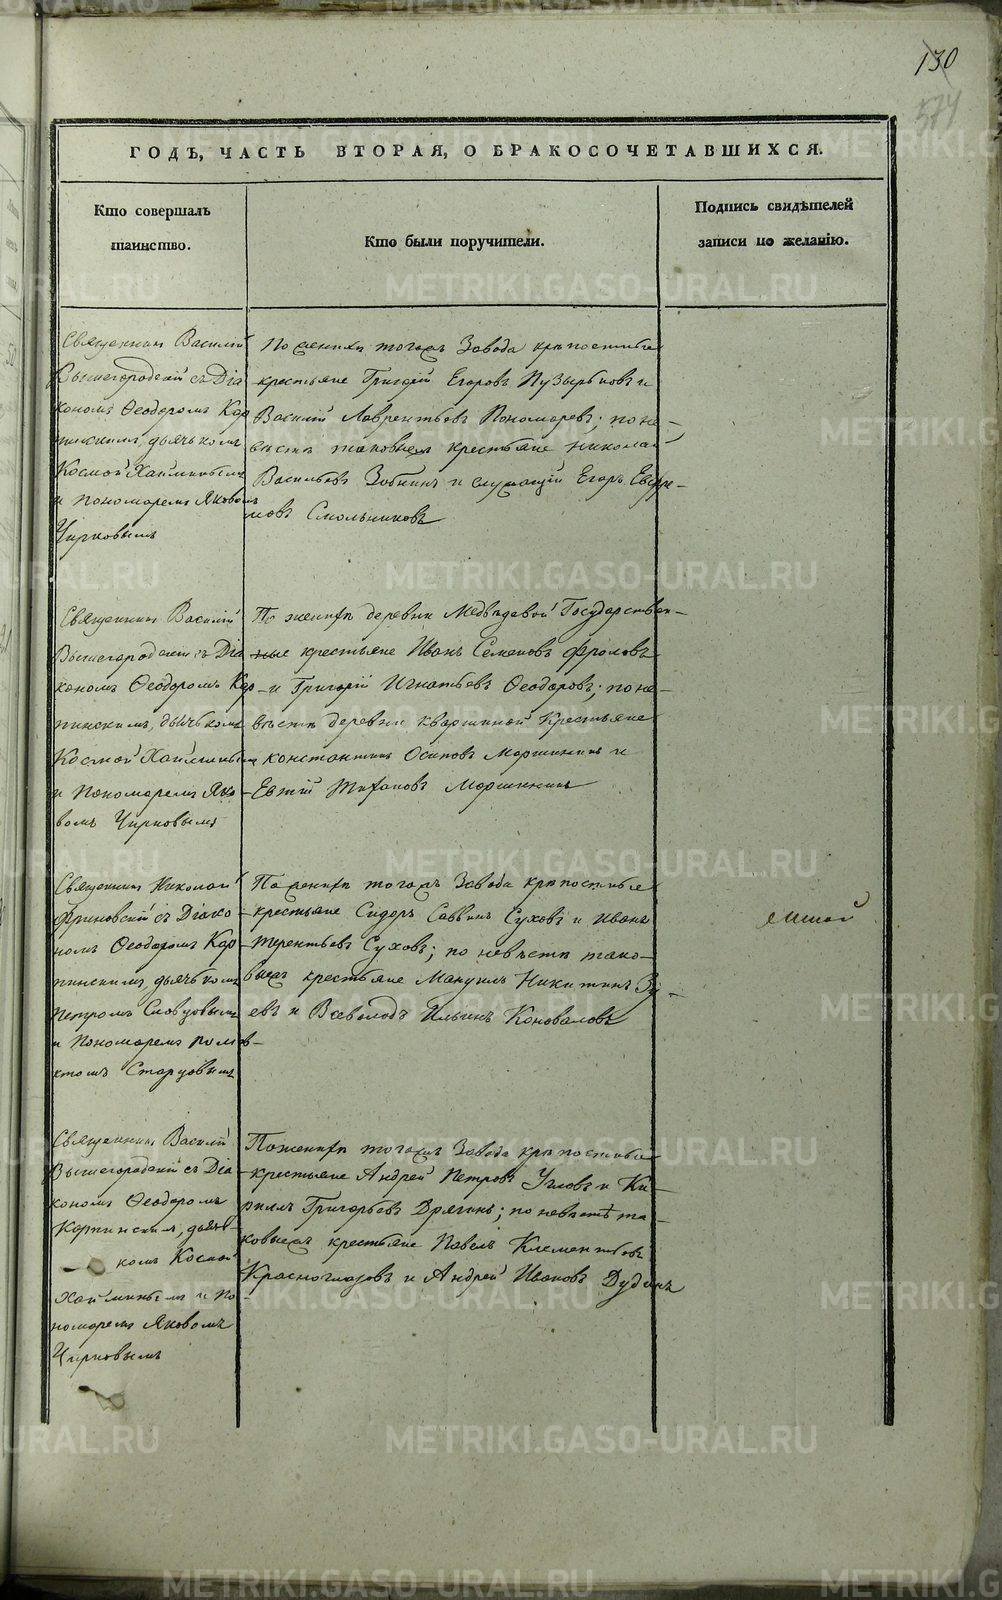 130
574
ГОДЪ, ЧАСТЬ ВТОРАЯ, О БРАКОСОЧЕТАВШИХСЯ.
Кто совершалъ
таинство.
Кто были поручители.
Подпись свидѣтелей
записи по желанію.
Священникъ Василій
Вышегородскій съ Діа
кономъ Ѳеодоромъ Кар
пинскимъ, дьячькомъ
Космой
и Пономаремъ Яковомъ
Чирковымъ
По женихѣ тогожъ Завода крѣпостные
крестьяне Григорій Егоровъ Пузырьковъ и
Василій Лаврентьевъ Пономаревъ; по не-
вѣстѣ таковыежъ крестьяне Николай
Васильевъ Зобнинъ и служащій Егоръ Евфре-
мовъ Смольниковъ
Священникъ Василій
Вышегородскій съ Діа
кономъ Ѳеодоромъ Кар
пинскимъ, дьячькомъ
Космой
и Пономаремъ Яко
вомъ Чирковымъ
По женихѣ деревни Медвѣдевой Государствен-
ные крестьяне Иванъ Семеновъ Фроловъ
и Григорій Игнатьевъ Ѳеодоровъ; по не-
вѣстѣ деревни Квашниной Крестьяне
Константинъ Осиповъ Моршининъ и
Моршининъ
Священникъ Николай
съ Діако
номъ Ѳеодоромъ Кар
пинскимъ, дьячькомъ
Петромъ Словцовымъ
и Пономаремъ
Старцовымъ
По женихѣ тогожъ Завода крѣпостные
крестьяне Сидоръ Саввинъ Суховъ и Иванъ
Терентьевъ Суховъ; по невѣстѣ тако-
выежъ крестьяне Мануилъ Никитинъ Зу-
евъ и Всеволодъ Ильинъ Коноваловъ
Священникъ Василій
Вышегородскій съ Діа
кономъ Ѳеодоромъ
Карпинскимъ, дьяч
комъ Космой
и По
номаремъ Яковомъ
Чирковымъ
По женихѣ тогожъ Завода крѣпостные
крестьяне Андрей Петровъ Угловъ и Ки-
рилъ Григорьевъ Дрягинъ; по невѣстѣ та-
ковыежъ крестьяне Павелъ Климентьевъ
Красноглазовъ и Андрей Ивановъ Дудинъ
METRIKI.GASO-URAL.RU